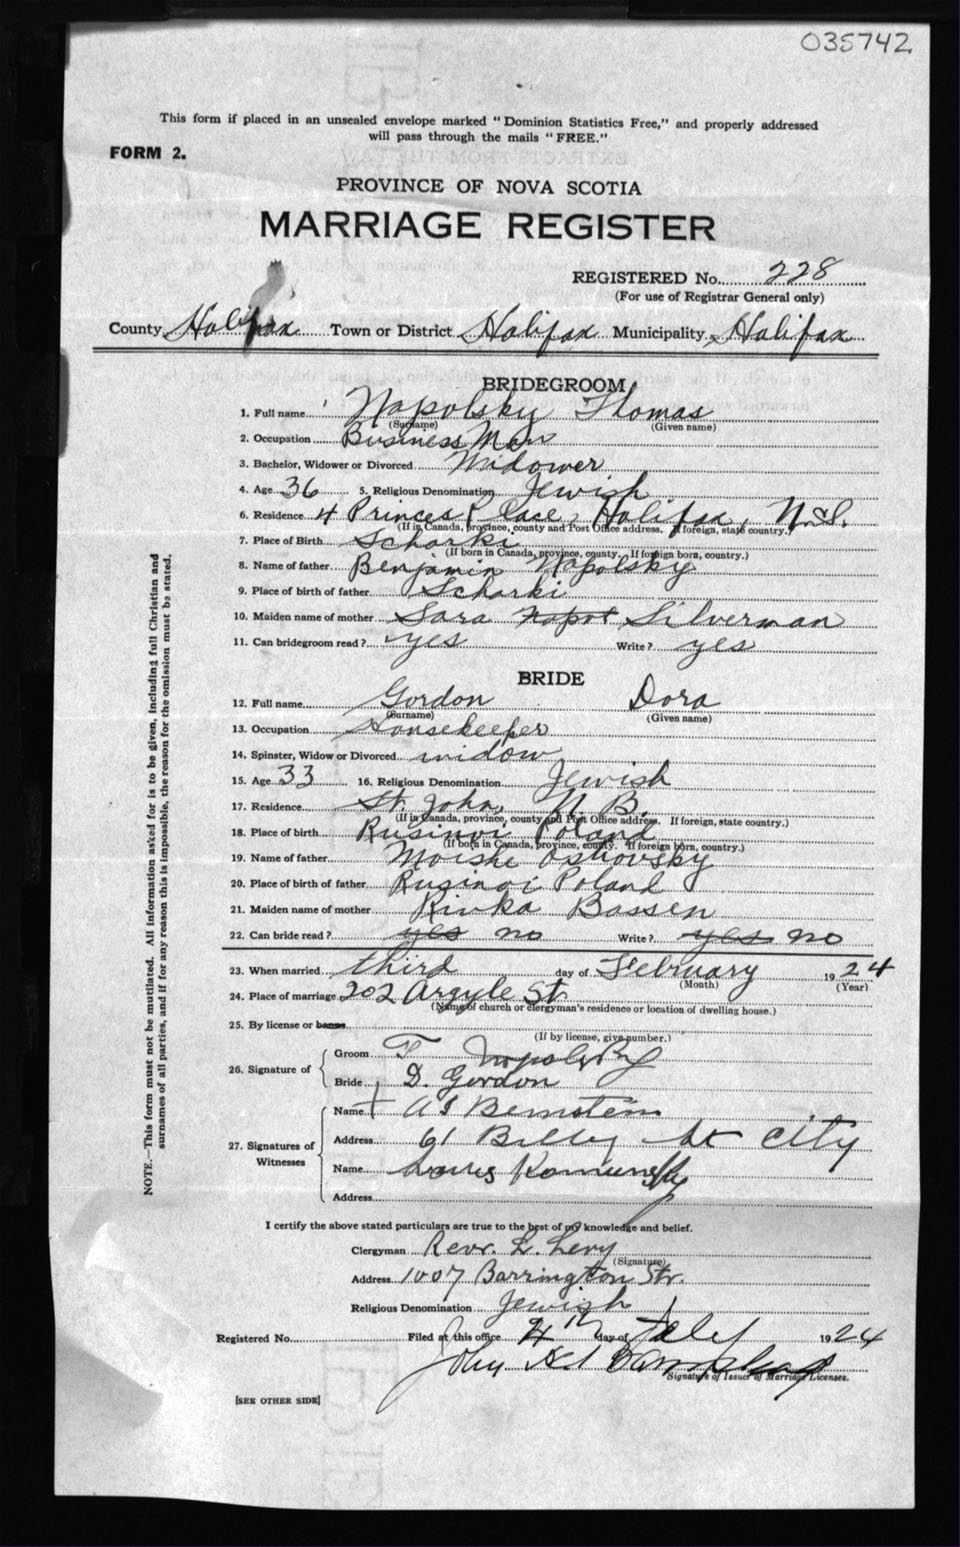 035742
This form if placed in an unsealed envelope marked "Dominion Statistics Free," and properly addressed
will pass through the mails "FREE."
FORM 2.
PROVINCE OF NOVA SCOTIA
MARRIAGE REGISTER
REGISTERED No. 228
(For use of Registrar General only)
County Halifax Town or District Halifax Municipality Halifax
BRIDEGROOM
1. Full name Napolsky Thomas
(Surname) (Given name)
2. Occupation Business Man
3. Bachelor, Widower or Divorced Widower
4. Age 36 5. Religious Denomination Jewish
6. Residence 4 Princes Place, Halifax, N.S.
(If in Canada, province, county and Post Office address. If foreign, state country.)
7. Place of Birth Scharki
(If born in Canada, province, county. If foreign born, country.)
8. Name of father Benjamin Napolsky
9. Place of birth of father Scharki
10. Maiden name of mother Sara Napol Silverman
11. Can bridegroom read? yes Write? yes
BRIDE
12. Full name Gordon Dora
(Surname) (Given name)
13. Occupation Housekeeper
14. Spinster, Widow or Divorced widow
15. Age 33 16. Religious Denomination Jewish
17. Residence St. John, N. B.
(If in Canada, province, county and Post Office address. If foreign, state country.)
18. Place of birth Rusinoi Poland
(If born in Canada, province, county. If foreign born, country.)
19. Name of father Moishe Ostrovsky
20. Place of birth of father Rusinoi Poland
21. Maiden name of mother Rivka Bassen
22. Can bride read? yes no Write? yes no
23. When married third day of February 1924
(Month) (Year)
24. Place of marriage 202 Argyle St.
(Name of church or clergyman's residence or location of dwelling house.)
25. By license or banns
(If by license, give number.)
26. Signature of
Groom T Napolsky
Bride D. Gordon
27. Signatures of Witnesses
Name A S Bernstein
Address 61 St City
Name Louis
Address
I certify the above stated particulars are true to the best of my knowledge and belief.
Clergyman Revr. L. Levy
(Signature)
Address 1007 Barrington Str.
Religious Denomination Jewish
Registered No. Filed at this office 4th day of 1924
John
Signature of Issuer of Marriage Licenses.
[SEE OTHER SIDE]
NOTE.—This form must not be mutilated. All information asked for is to be given, including full Christian and
surnames of all parties, and if for any reason this is impossible, the reason for the omission must be stated.